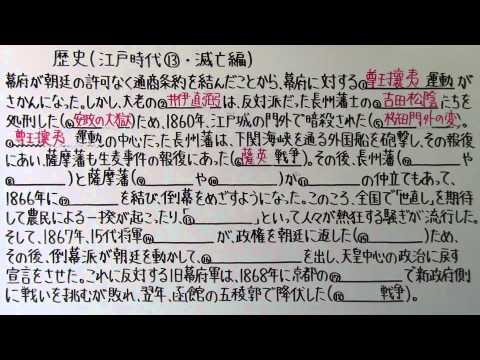 歴史(江戸時代⑬・滅亡編)
幕府が朝廷の許可なく通商条約を結んだことから、幕府に対する 尊王攘夷 運動が
さかんになった。しかし、大老の 井伊直弼は、反対だった長州藩士の 吉田松陰たちを
処刑した(安政の大獄)ため、1860年、江戸城の門外で暗殺された(桜田門外の変)。
尊王攘夷 運動の中心だった長州藩は、下関海峡を通る外国船を砲撃し、その報復
にあい、薩摩藩も生麦事件の報復にあった(薩英 戦争)。その後、長州藩( や
)と薩摩藩( や )が の仲立てもあって、
1866年に を結び、倒幕をめざすようになった。このころ、全国で「世直し」を期待
して農民による一揆が起こったり、「 」といって人々が熱狂する騒ぎが流行した。
そして、1867年、15代将軍 が、政権を朝廷に返した( )ため、
その後、倒幕派が朝廷を動かして、 を出し、天皇中心の政治に戻す
宣言をさせた。これに反対する旧幕府軍は、1868年に京都の で新政府側
に戦いを挑むが敗れ、翌年、函館の五稜郭で降伏した( 戦争)。